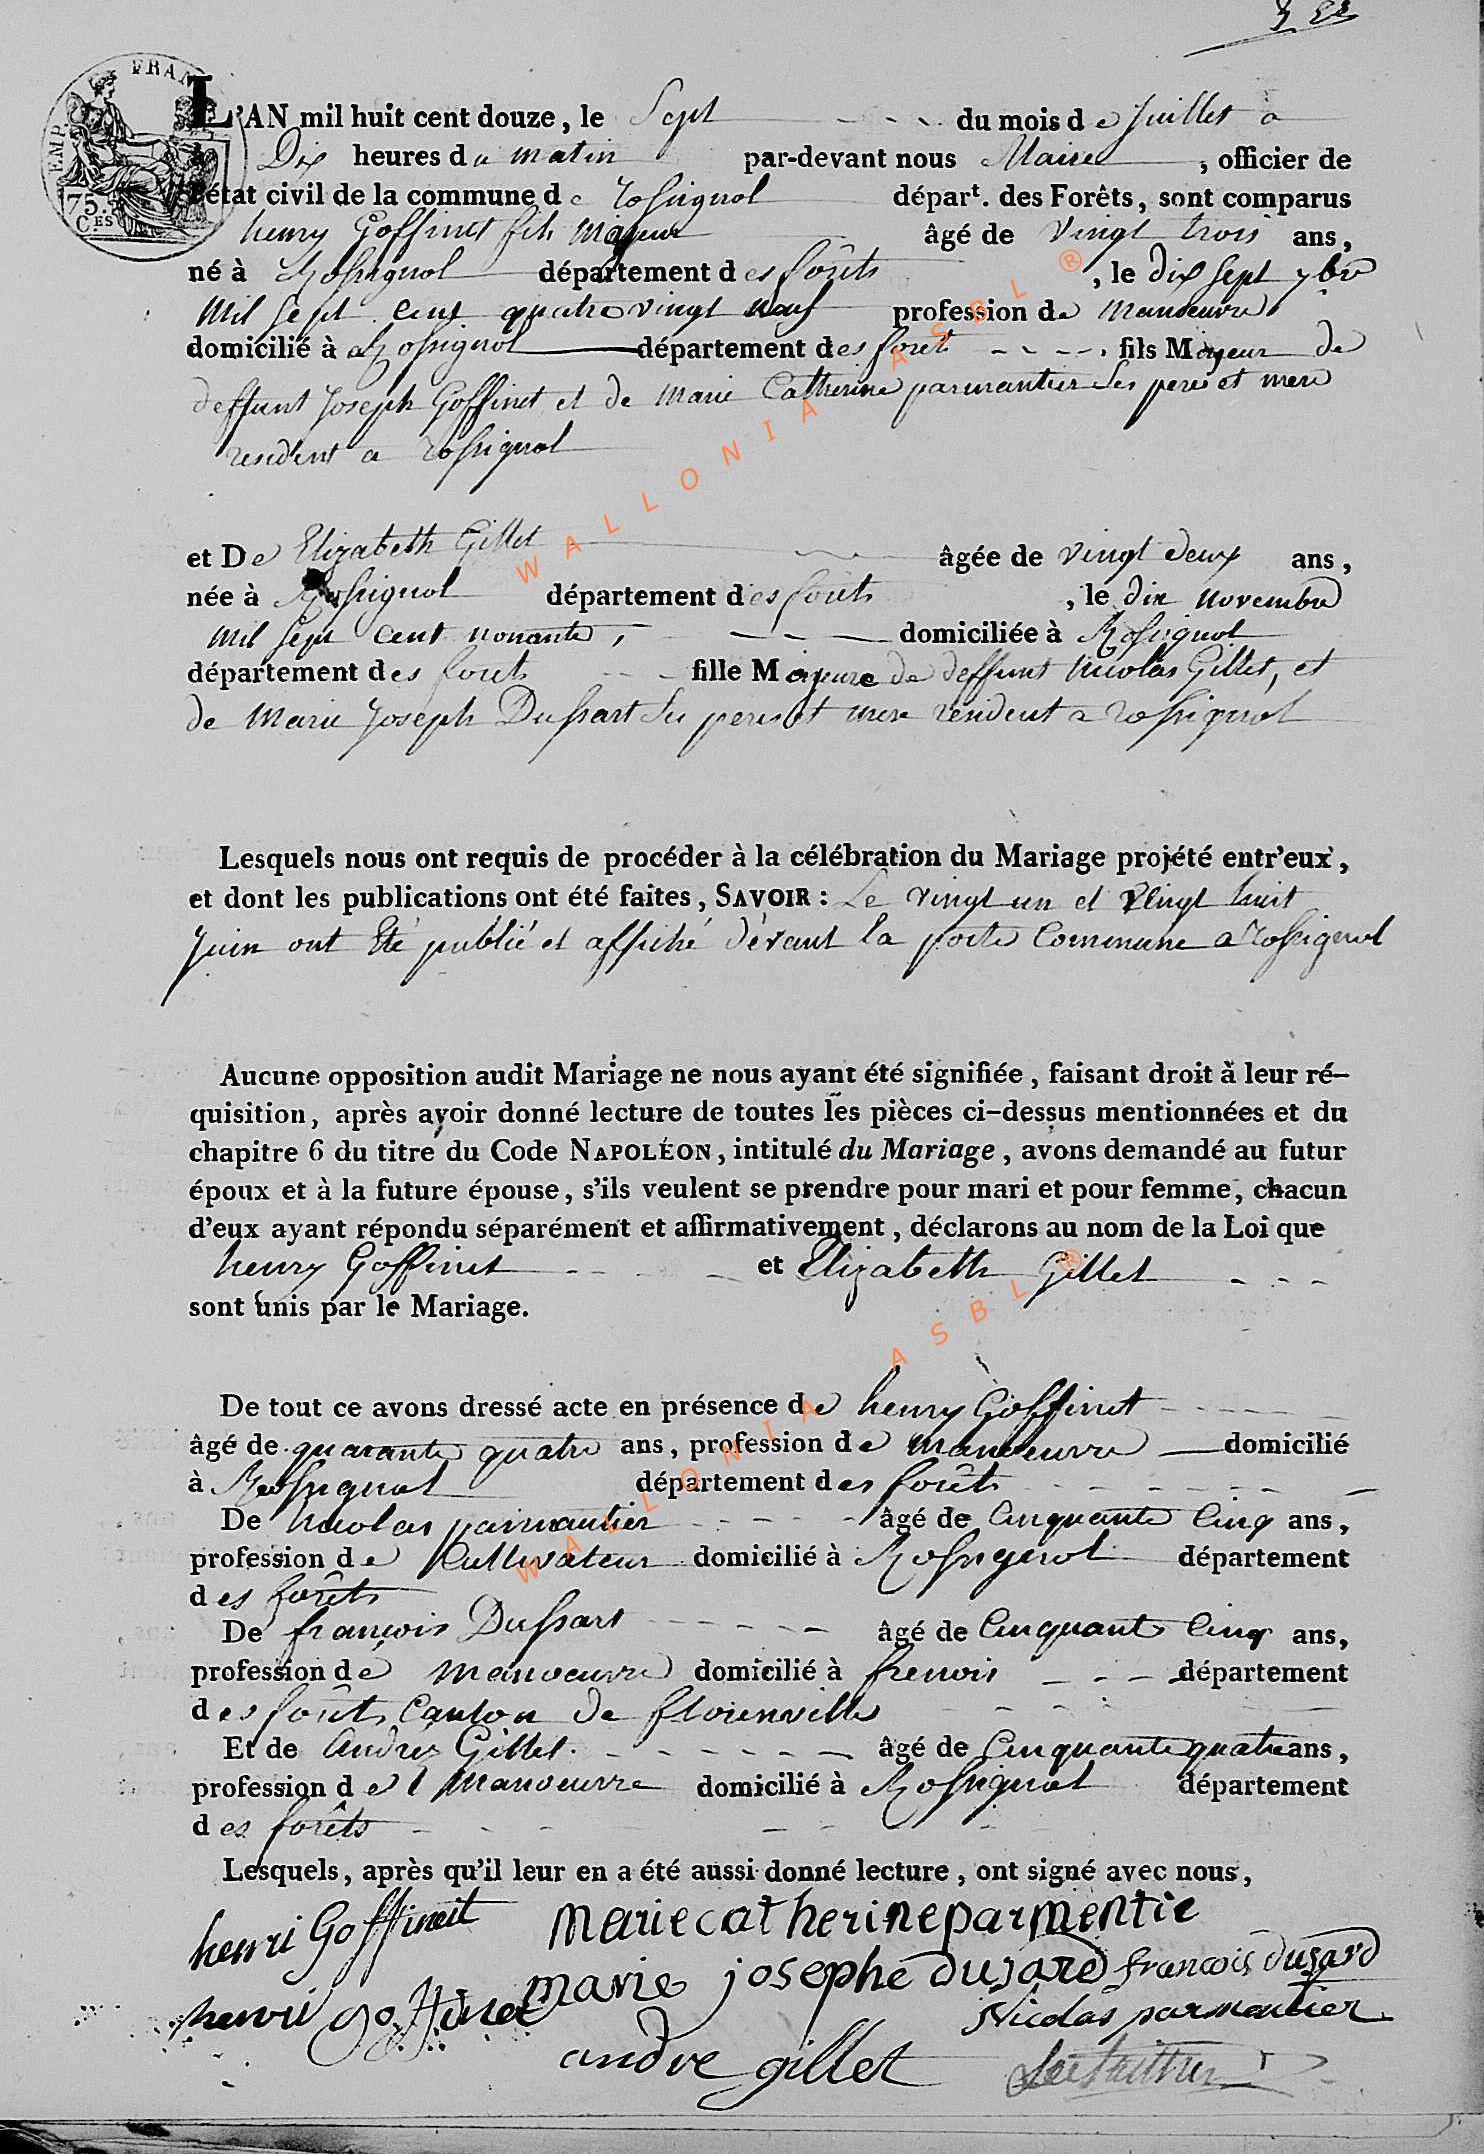 EMP. FRAN
75. CES
L'AN mil huit cent douze, le Sept du mois de juillet a
Dix heures du matin par-devant nous Maire, officier de
l'état civil de la commune de rossignol départ. des Forêts, sont comparus
henry Goffinet fils Majeur âgé de vingt trois ans,
né à Rossignol département des forêts, le dix sept 7bre
mil sept cent quatre vingt neuf profession de manoeuvre
domicilié à Rossignol département des forets fils Majeur de
deffunt Joseph Goffinet et de marie Catherine parmantier ses pere et mere
resident a rossignol
et De Elizabeth Gillet âgée de vingt deux ans,
née à Rossignol département des forêts, le dix novembre
mil sept cent nonante, domiciliée à Rossignol
département des forets fille Majeure de deffunt Nicolas Gillet, et
de Marie Joseph Dussart ses pere et mere resident a rossignol
Lesquels nous ont requis de procéder à la célébration du Mariage projété entr'eux,
et dont les publications ont été faites, SAVOIR : Le vingt un et vingt huit
juin ont Eté publié et affiché dévant la porte Commune a rossignol
Aucune opposition audit Mariage ne nous ayant été signifiée, faisant droit à leur ré-
quisition, après avoir donné lecture de toutes les pièces ci-dessus mentionnées et du
chapitre 6 du titre du Code NAPOLÉON, intitulé du Mariage, avons demandé au futur
époux et à la future épouse, s'ils veulent se prendre pour mari et pour femme, chacun
d'eux ayant répondu séparément et affirmativement, déclarons au nom de la Loi que
henry Goffinet et Elizabeth Gillet
sont unis par le Mariage.
De tout ce avons dressé acte en présence de henry Goffinet
âgé de quarante quatre ans, profession de manoeuvre domicilié
à Rossignol département des forêts
De nicolas parmantier âgé de Cinquante Cinq ans,
profession de Cultivateur domicilié à Rossignol département
des forêts
De francois Dussart âgé de Cinquante Cinq ans,
profession de manoeuvre domicilié à frenois département
des forêts Canton de florenville
Et de André Gillet âgé de Cinquante quatre ans,
profession de Manoeuvre domicilié à Rossignol département
des forêts
Lesquels, après qu'il leur en a été aussi donné lecture, ont signé avec nous,
henri Goffineit marie catherine parmentie
marie josephe dusard francois dusard
henri goffinet Nicolas parmentier
andre gillet
WALLONIA ASBL ®
WALLONIA ASBL ®